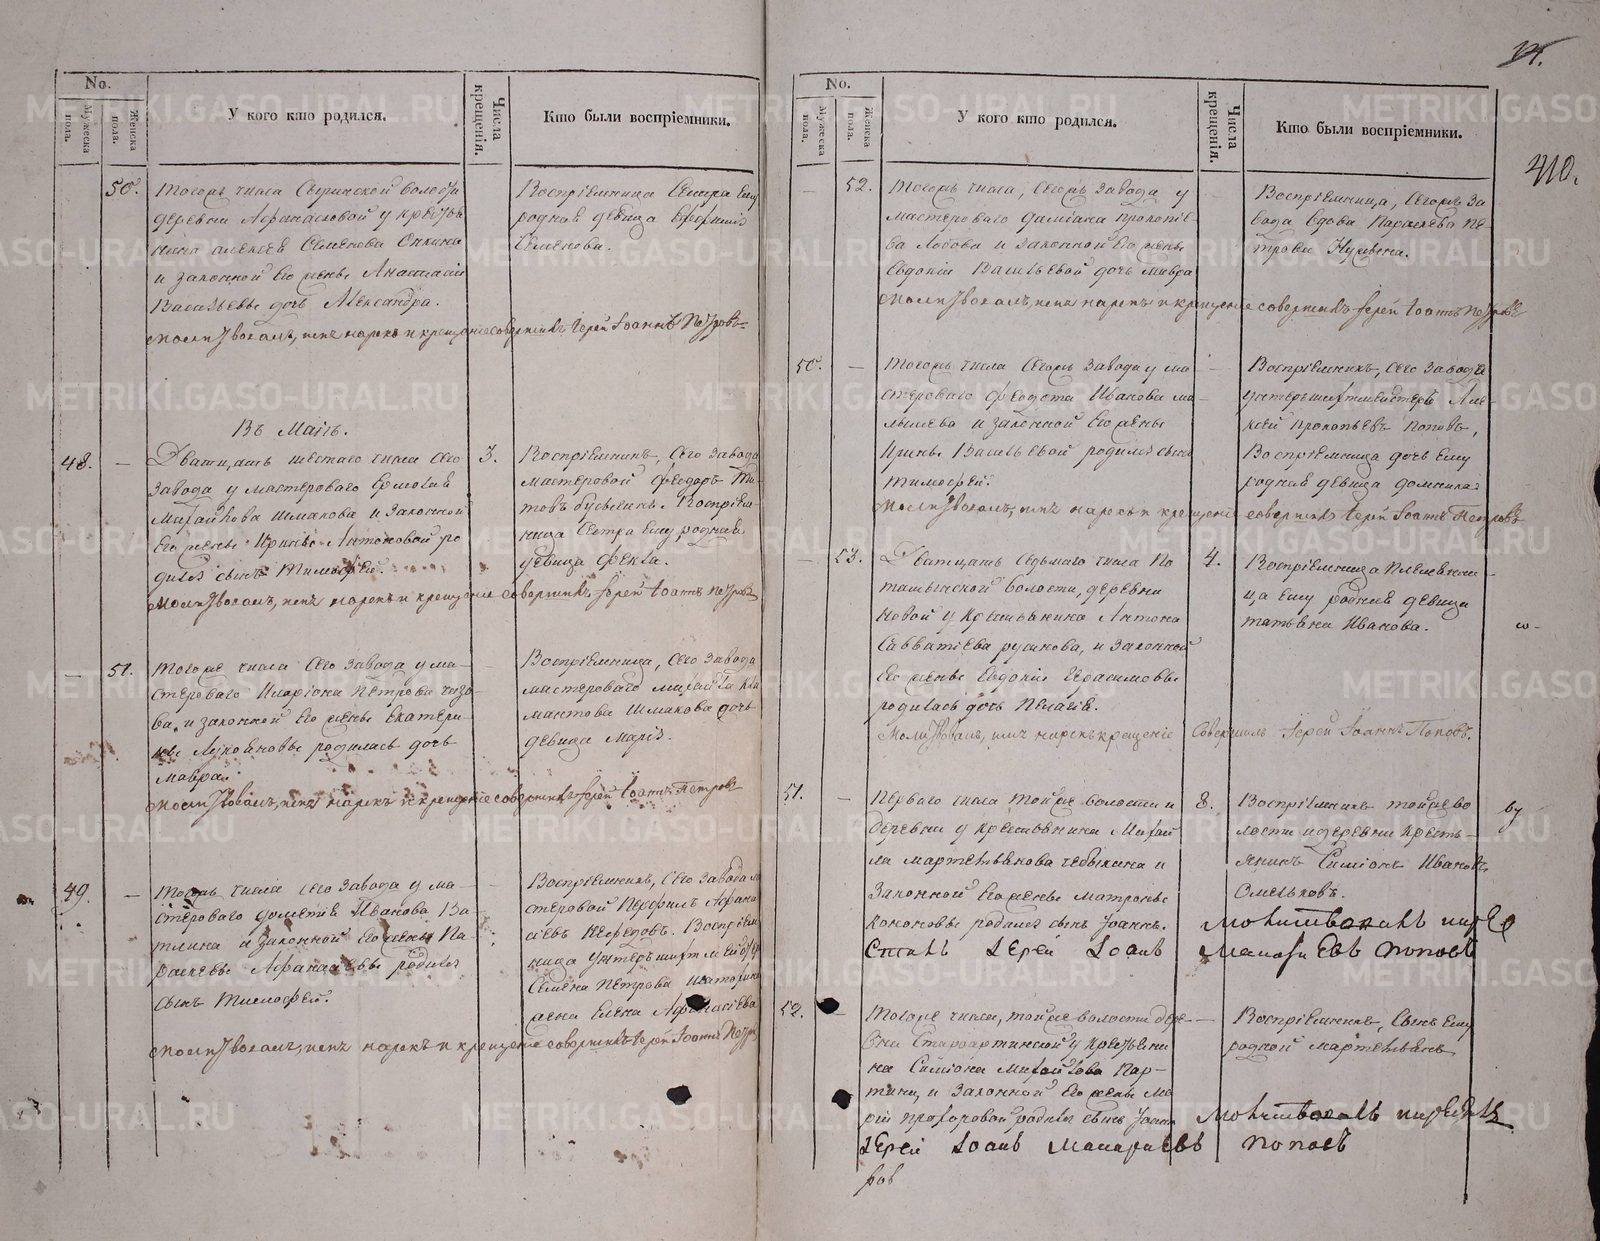 No.
Мужеска пола.
Женска пола.
У кого кто родился.
Числа крещенія.
Кто были воспріемники.
50.
Тогожъ числа Сыринской волости
деревни Афанасковой у крестья
нина Алексея Семенова
и законной его жены Анастасіи
Васильевы дочь Александра.
Молитвовалъ, имя нарекъ и крещеніе совершилъ Іерей Іоаннъ Петровъ
Воспріемница сестра ему
родная девица
Семенова.
Въ Маіѣ.
48.
Дватцать шестаго числа сего
завода у мастероваго Ермолая
Михайлова Шмакова и законной
его жены Ирины Антоновой ро
дился сынъ Тимофей.
Молитвовалъ, имя нарекъ и крещеніе совершилъ Іерей Іоаннъ Петровъ
3.
Воспріемникъ, сего завода
мастеровой Феодоръ Ти
товъ Воспріем
ница сестра ему родная
девица Фекла.
51.
Тогоже числа сего завода у ма-
стероваго Иларіона Петрова
ва, и законной его жены Екатери-
ны Лукояновы родилась дочь
Мавра.
Молитвовалъ, имя нарекъ и крещеніе совершилъ Іерей Іоаннъ Петровъ
Воспріемница, сего завода
мастероваго Михайла Кли
мантова Шмакова дочь
девица Марія.
49.
Тогожъ числа сего завода у ма-
стероваго Дометія Иванова Ва
тлина и законной его жены Па
раскевы Афанасьевы родился
сынъ Тимофей.
Молитвовалъ, имя нарекъ и крещеніе совершилъ Іерей Іоаннъ Петровъ
Воспріемникъ, сего завода ма
стеровой Перфилъ Афана
сіевъ Воспріем
ница унтеръ шихтмейстера
Семена Петрова
жена Елена Афанасіева
410.
No.
Мужеска пола.
Женска пола.
У кого кто родился.
Числа крещенія.
Кто были воспріемники.
52.
Тогожъ числа, сегожъ завода у
мастероваго Даміана Прокопіе
ва Лобова и законной его жены
Евдокіи Васильевой дочь Мавра
Молитвовалъ, имя нарекъ и крещеніе совершилъ Іерей Іоаннъ Петровъ
Воспріемница, сегожъ за
вода вдова Параскева Пе-
трова
50.
Тогожъ числа сегожъ завода у ма
стероваго Федота Иванова Ма
лышева и законной его жены
Ирины Васильевой родился сынъ
Тимофей.
Молитвовалъ, имя нарекъ и крещеніе совершилъ Іерей Іоаннъ Петровъ
Воспріемникъ, сего завода
унтершихтмейстеръ Але-
ксей Прокопьевъ Поповъ,
Воспріемница дочь ему
родная девица Домника
53.
Дватцать седьмаго числа По
ташинской волости, деревни
Новой у крестьянина Антона
Савватіева Русинова, и законной
его жены Евдокіи Герасимовы
родилась дочь Пелагія.
Молитвовалъ, имя нарекъ крещеніе Совершилъ Іерей Іоаннъ Поповъ.
4.
Воспріемница племянни-
ца ему родная девица
Татьяна Иванова.
51.
Перваго числа тойже волости и
деревни у крестьянина Михай
ла Мартемьянова Чебыкина и
законной его жены Матроны
Кононовы родился сынъ Іоаннъ.
8.
Воспріемникъ тойже во
лости и деревни кресть-
янинъ Симіонъ Ивановъ
Омельковъ.
Молитвовалъ
Іерей Іоаннъ Макаріевъ Поповъ
52.
Тогоже числа, тойже волости дере-
вни Староартинской у крестьяни
на Симіона Михайлова Пар-
тина и законной его жены Ма
ріи Прохоровой родился сынъ Іоаннъ
Воспріемникъ, сынъ ему
родной Мартемьянъ
Молитвовалъ
Іерей Іоаннъ Макаріевъ Поповъ
METRIKI.GASO-URAL.RU